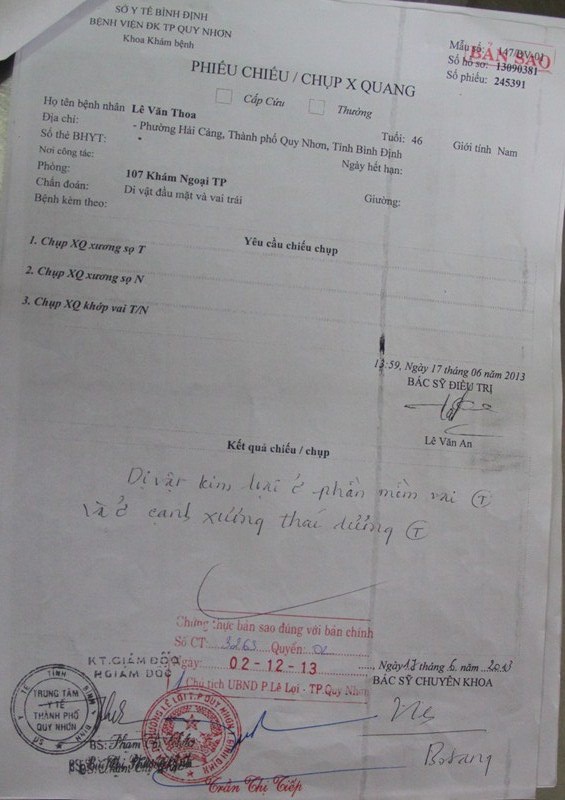 SỞ Y TẾ BÌNH ĐỊNH
BỆNH VIỆN ĐK TP QUY NHƠN
Khoa Khám bệnh
Mẫu số: 147/BV-01
BẢN SAO
Số hồ sơ: 13090381
Số phiếu: 245391
PHIẾU CHIẾU / CHỤP X QUANG
Cấp Cứu Thường
Họ tên bệnh nhân Lê Văn Thoa Tuổi: 46 Giới tính Nam
Địa chỉ: - Phường Hải Cảng, Thành phố Quy Nhơn, Tỉnh Bình Định
Số thẻ BHYT: - Ngày hết hạn:
Nơi công tác:
Phòng: 107 Khám Ngoại TP Giường:
Chẩn đoán: Dị vật đầu mặt và vai trái
Bệnh kèm theo:
Yêu cầu chiếu chụp
1. Chụp XQ xương sọ T
2. Chụp XQ xương sọ N
3. Chụp XQ khớp vai T/N
13:59, Ngày 17 tháng 06 năm 2013
BÁC SỸ ĐIỀU TRỊ
Lê Văn An
Kết quả chiếu / chụp
Dị vật kim loại ở phần mềm vai (T)
và ở cạnh xương thái dương (T)
Chứng thực bản sao đúng với bản chính
Số CT: 3263 Quyển: 02
Ngày: 02-12-13
Chủ tịch UBND P.Lê Lợi - TP.Quy Nhơn
KT.GIÁM ĐỐC
Ngày 17 tháng 6 năm 2013
BÁC SỸ CHUYÊN KHOA
TRUNG TÂM
Y TẾ
THÀNH PHỐ
QUY NHƠN
Trần Thị Tiếp